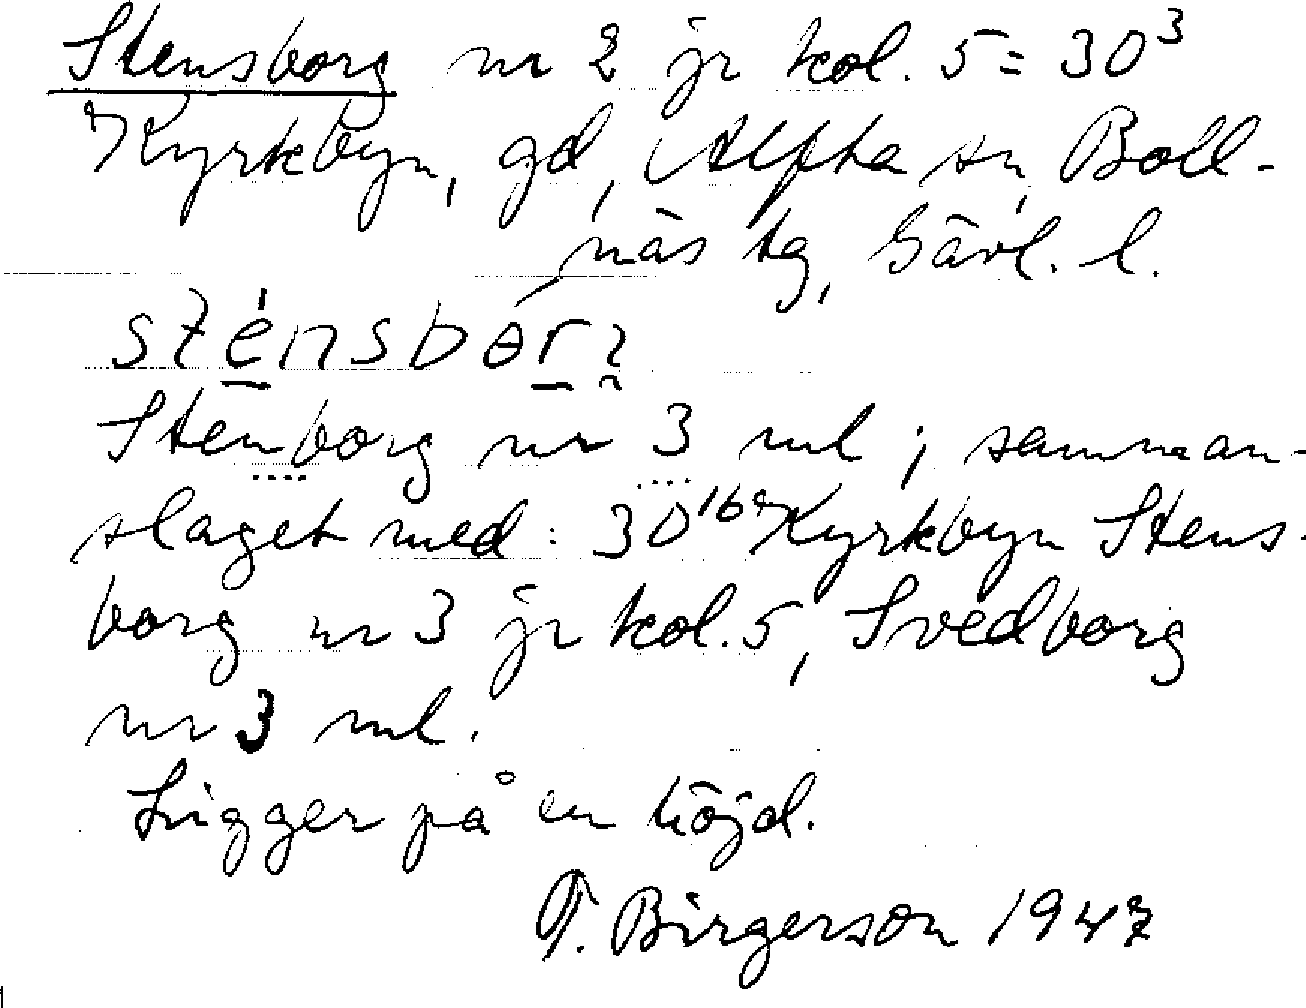 Stensborg nr 2 jr kol. 5 = 30³
Kyrkbyn, gd, Alfta sn, Boll-
näs tg, Gävl. l.
Stenborg nr 3 ml ; samman-
slaget med : 30¹⁶ Kyrkbyn Stens-
borg nr 3 jr kol. 5, Svedborg
nr 3 ml.
Ligger på en höjd.
F. Birgerson 1947